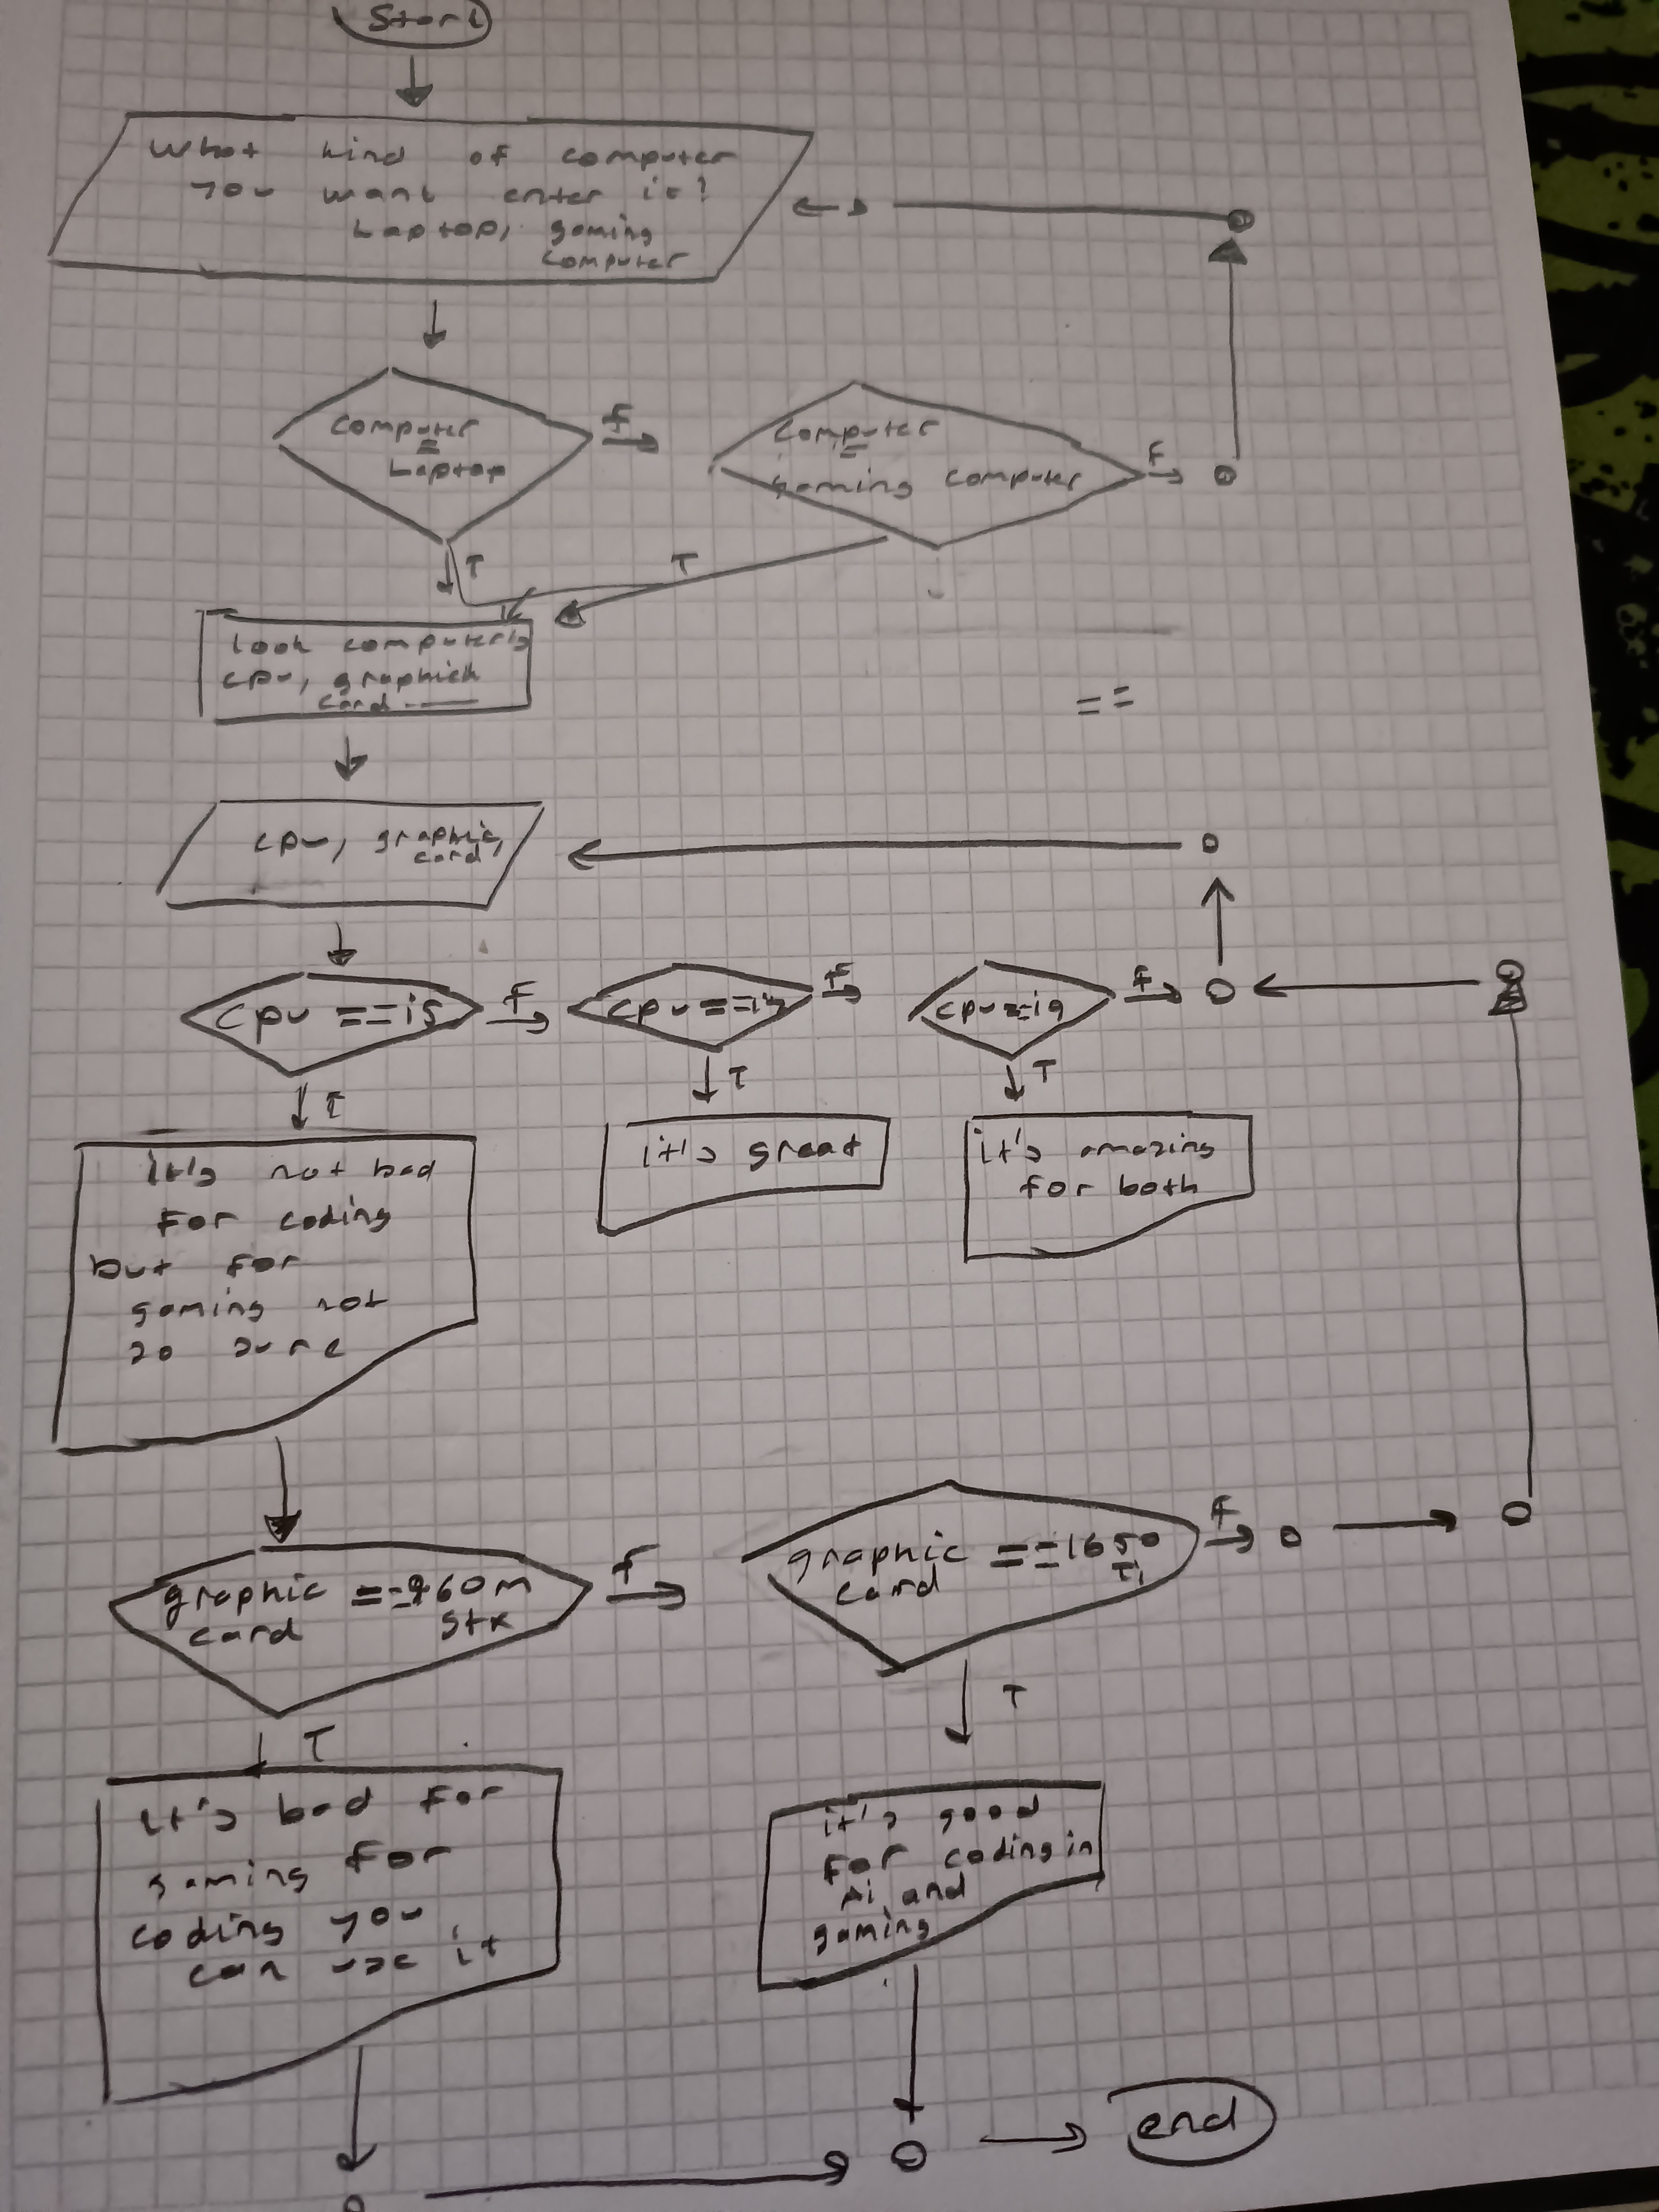 Start
What kind of computer
you want enter it?
Laptop, gaming
computer
computer
=
Laptop
F
computer
=
gaming computer
F
T
T
look computer's
cpu, graphich
card
==
cpu, graphic
card
cpu ==i5
F
cpu ==i7
F
cpu==i9
F
T
T
T
it's not bad
for coding
but for
gaming not
so sure
it's great
it's amazing
for both
graphic ==960m
card gtx
F
graphic ==1650
card Ti
F
T
T
it's bad for
gaming for
coding you
can use it
it's good
for coding in
Ai and
gaming
end